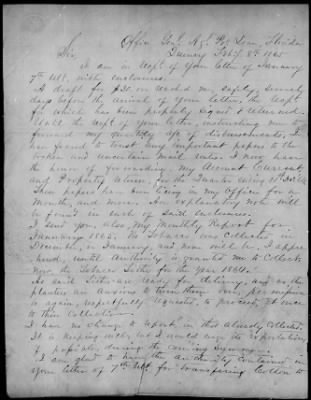 Office Gen'l Agt Po'k Loan, Florida
Quincy Feby 8th 1865
Sir,
I am in rec'pt of your letter of January
7th Ult. with enclosures.
A draft for $30. reached my safely, several
days before the arrival of your letter, the rec'pt
for which has been properly signed & returned.
Until the rec'pt of your letter instructing me to
forward my monthly of disbursements, I
have feared to trust any important papers to the
broken and uncertain mail routes. I now have
the honor of forwarding, my Account Current
and Property Return, for the Quarter ending 31st Dec 1864
These papers have been lying in my Office for a
month, and more. An explanatory note will
be found in each of said enclosures.
I send you, also, my Monthly Report for
January 1865. No Tobacco was Collected in
December, or January, and none will be, I appre-
hend, until Authority is granted me to Collect
Now, the Tobacco Tithe for the year 1864.
As said Tithes are ready for delivery, and as the
planters are anxious to turn them over, permission
is again, respectfully requested, to proceed, at once
to their Collection.
I have no change to report in that already Collected.
It is keeping well, but I would urge its exportation,
if profitable, during the coming Spring.
I am glad to have the authority contained in
your letter of 7th Ult. for transferring Cotton to